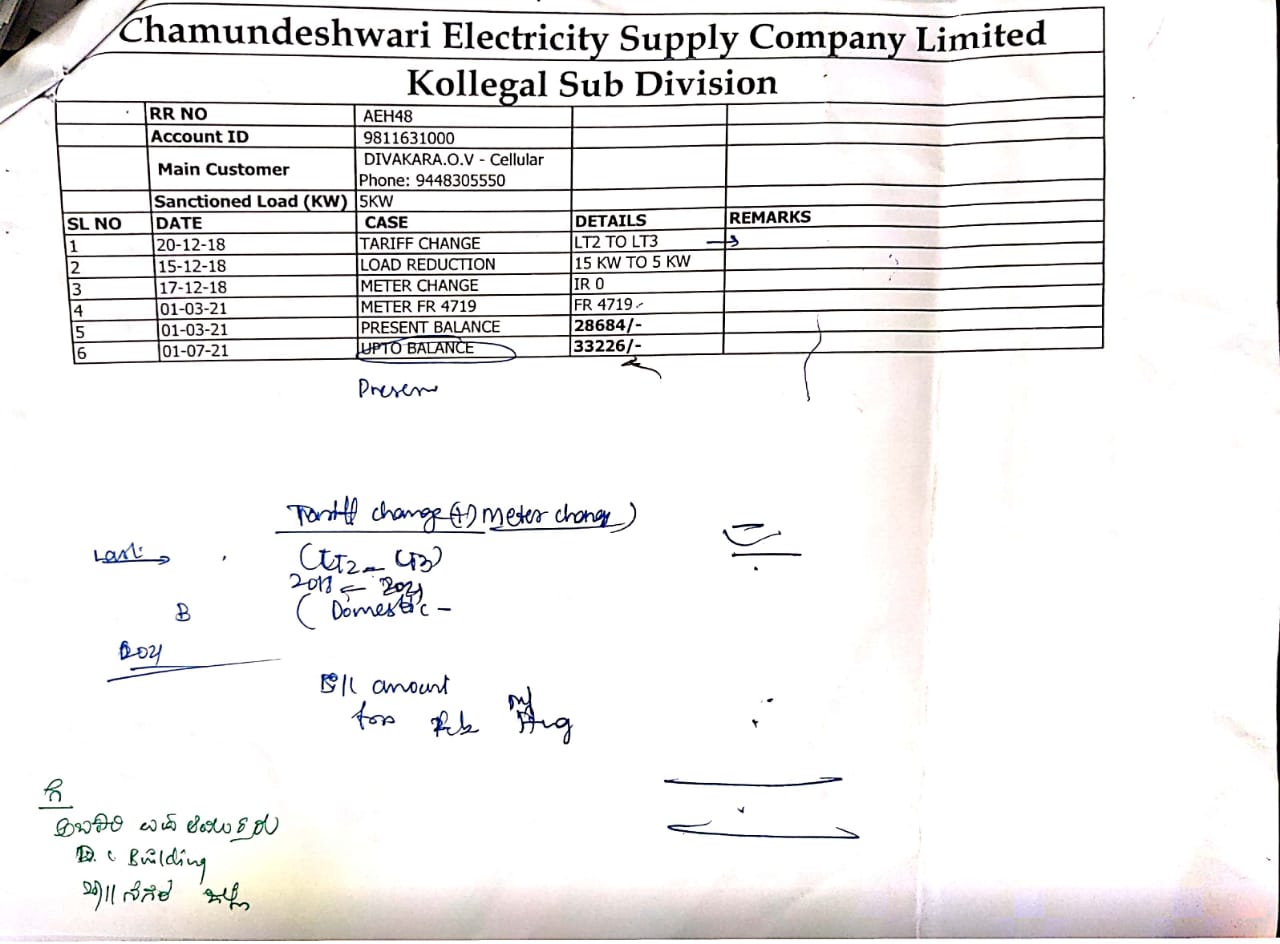 Chamundeshwari Electricity Supply Company Limited
Kollegal Sub Division
RR NO AEH48
Account ID 9811631000
Main Customer DIVAKARA.O.V - Cellular
Phone: 9448305550
Sanctioned Load (KW) 5KW
SL NO DATE CASE DETAILS REMARKS
1 20-12-18 TARIFF CHANGE LT2 TO LT3
2 15-12-18 LOAD REDUCTION 15 KW TO 5 KW
3 17-12-18 METER CHANGE IR 0
4 01-03-21 METER FR 4719 FR 4719
5 01-03-21 PRESENT BALANCE 28684/-
6 01-07-21 UPTO BALANCE 33226/-
Presen
Tariff change (+) Meter change)
Last:
(LT2 - LT3)
2018 - 2021
B (Domestic -
2021
Bill amount
for
ಗೆ
ಅಬಕಾರಿ ಉಪ ಆಯುಕ್ತರು
D. C Building
ಜಿಲ್ಲೆ